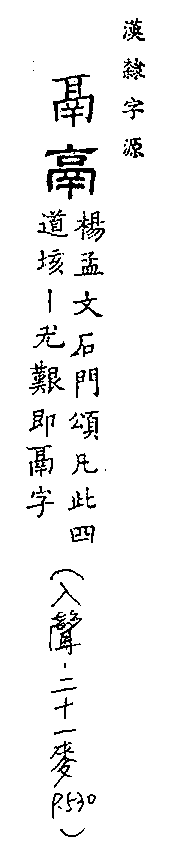 漢隸字源
鬲
鬲
楊孟文石門頌凡此四
道垓｜尤艱即鬲字
(入聲．二十一麥 P.530)